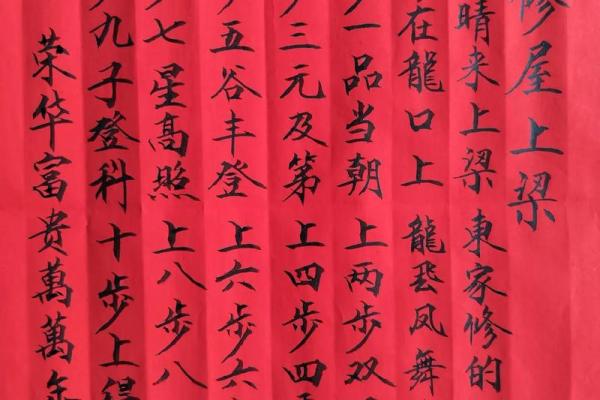 修屋上梁
晴来上梁東家修的
在龍口上龍飛凤舞
一品当朝上两步双
三元及第上四步四
五谷丰登上六步六
七星高照上八步八
九子登科十步上得
荣华富贵萬萬年